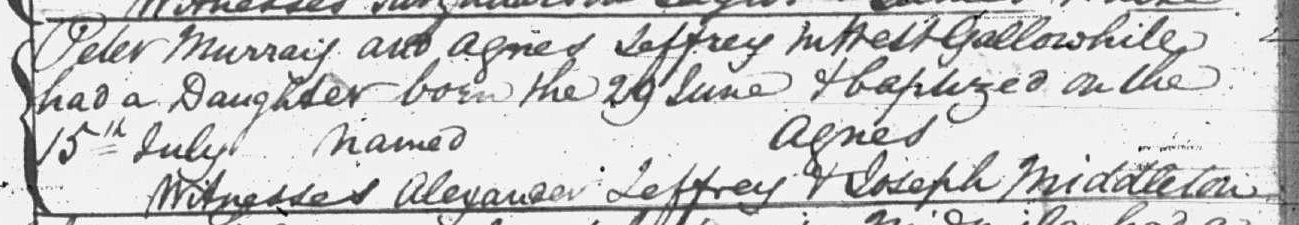 Witnesses
Peter Murray and Agnes Jeffrey in West Gallowhile
had a Daughter born the 29 June & baptized on the
15th July named Agnes
Witnesses Alexander Jeffrey & Joseph Middleton
had a